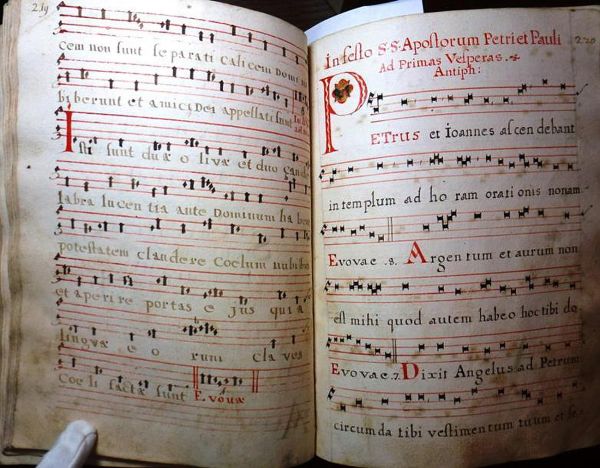 219
cem non sunt se parati Calicem Domini
biberunt et amici Dei appellati sunt
Isti sunt duæ olivæ et duo cande
labra lucentia ante Dominum habent
potestatem claudere Coelum nubibus
et aperire portas ejus quia
linguæ eorum claves
Coeli factæ sunt Evovæ
220
In festo S.S. Apostorum Petri et Pauli
Ad Primas Vesperas.
Antiph:
PETRUS et Ioannes ascendebant
in templum ad horam orationis nonam
Evovae .8. Argentum et aurum non
est mihi quod autem habeo hoc tibi do
Evovae.7. Dixit Angelus ad Petrum
circumda tibi vestimentum tuum et se